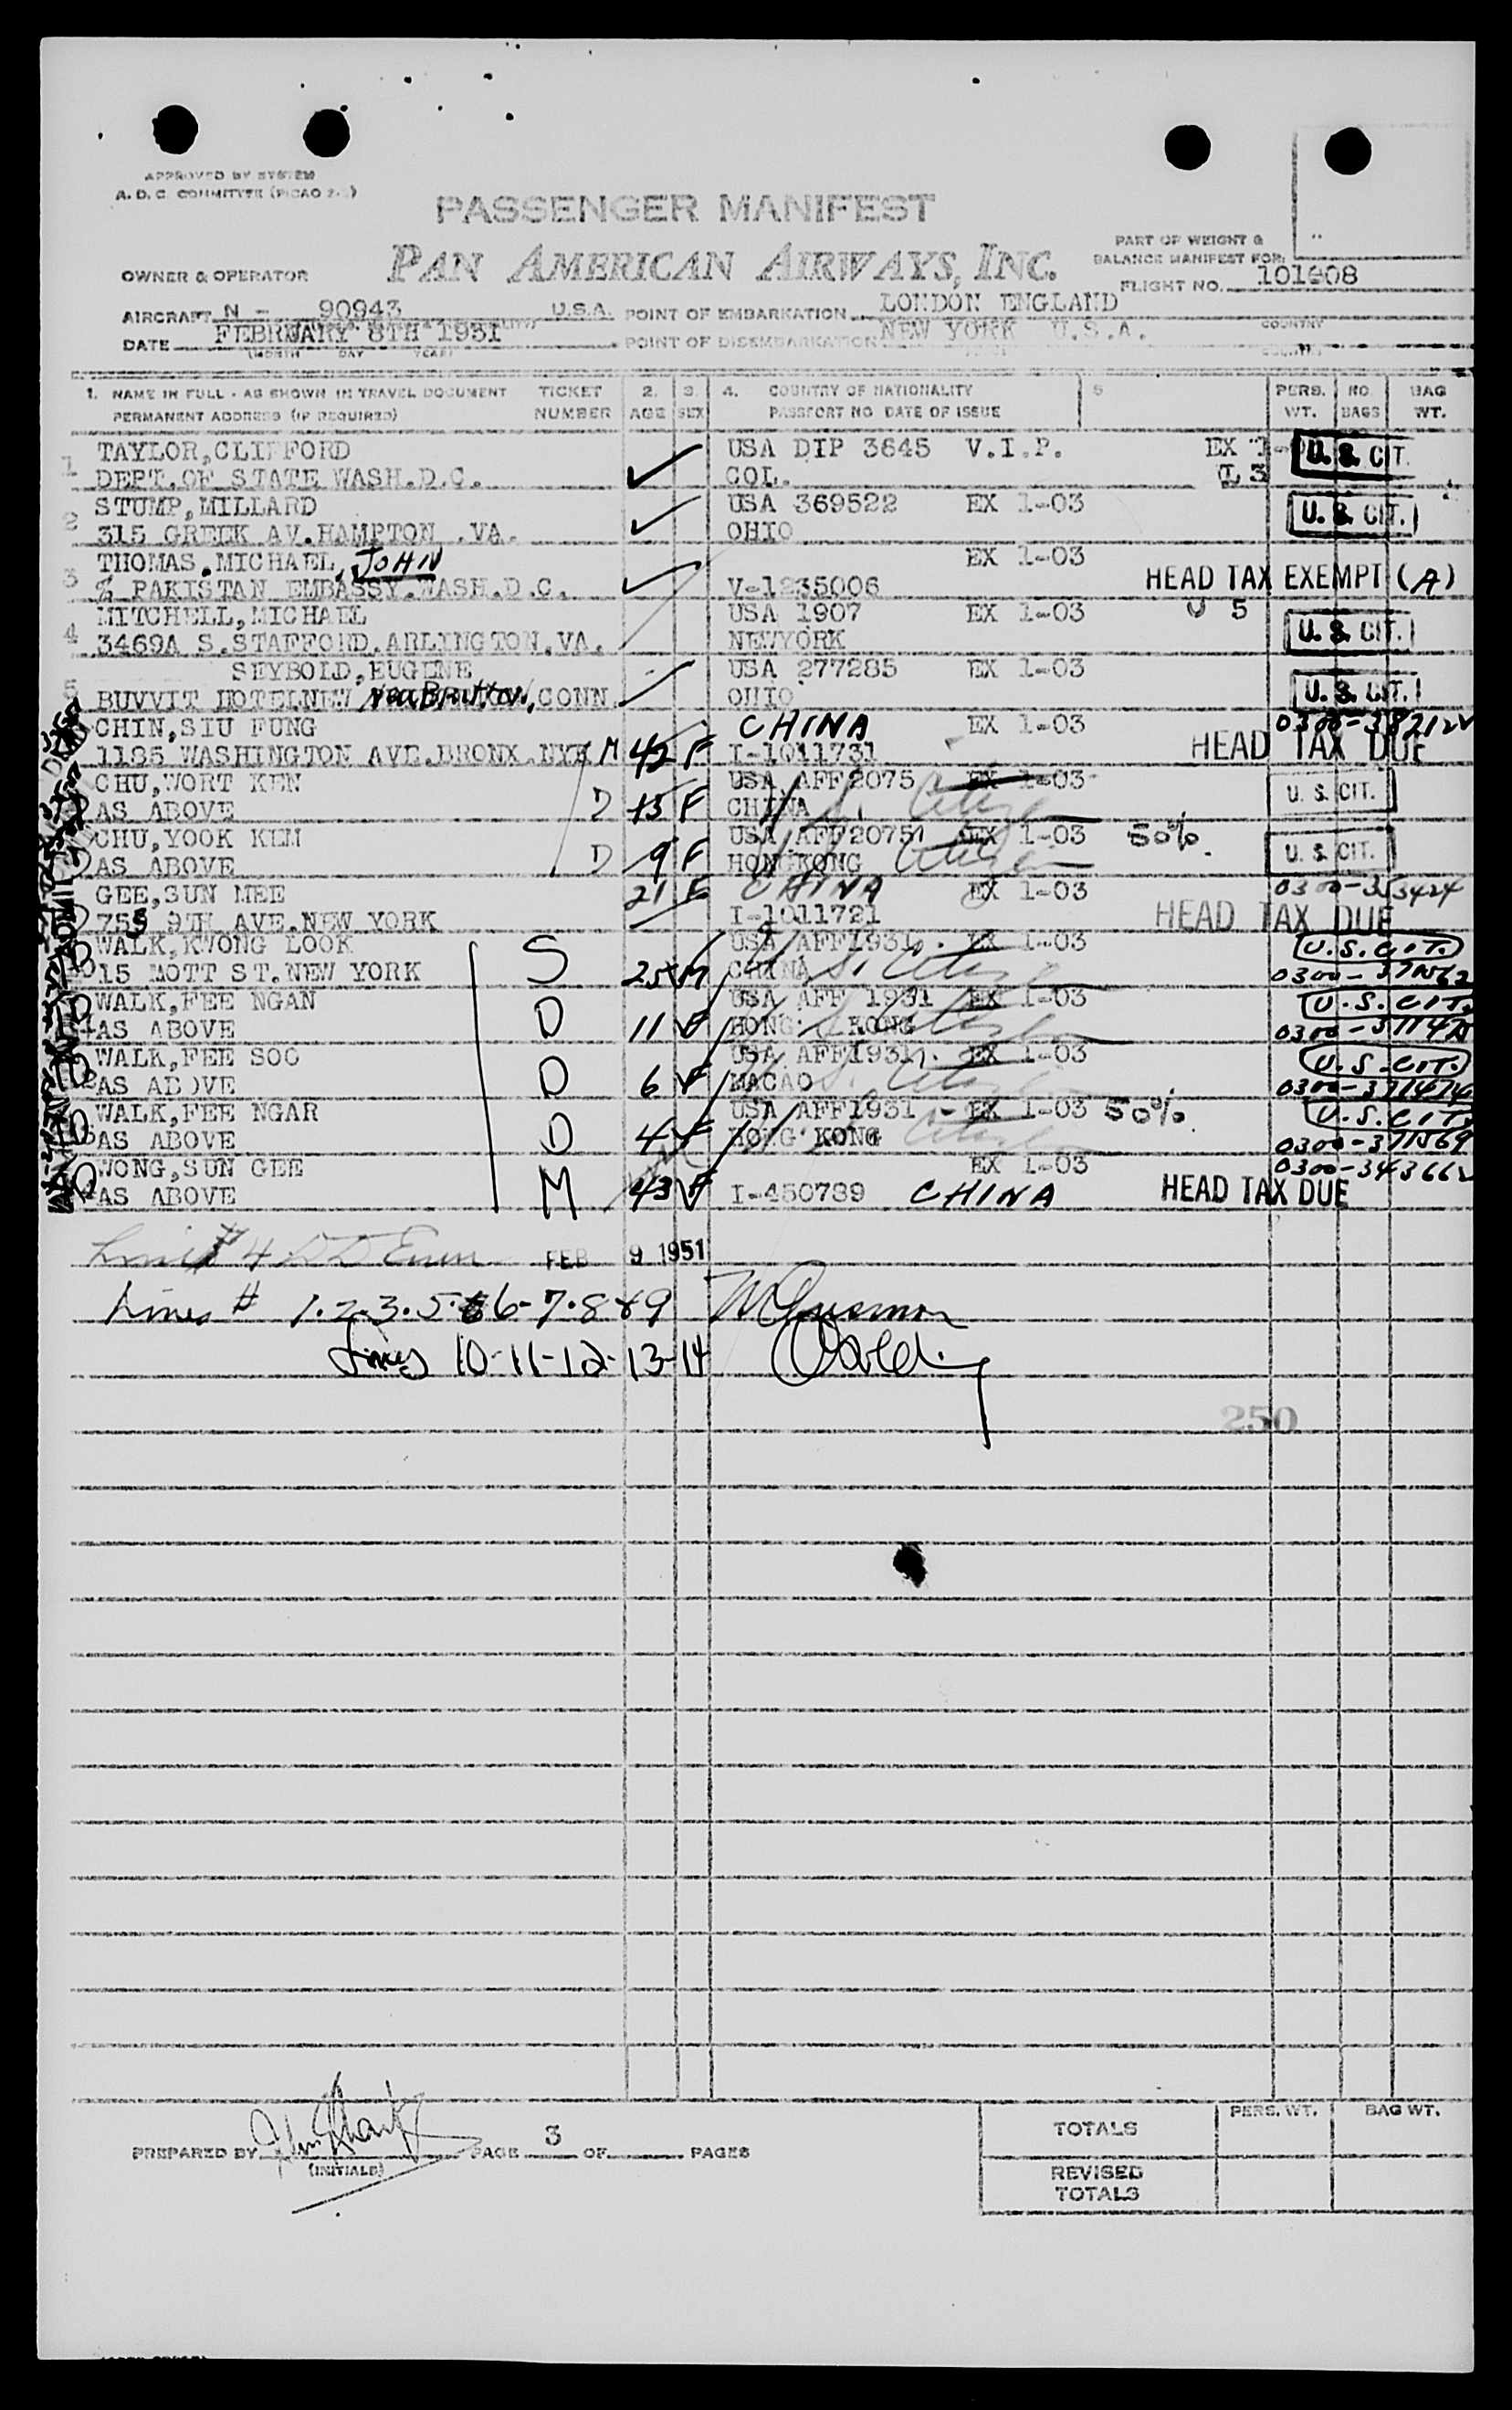 APPROVED BY SYSTEM
A. D. C. COMMITTEE (PICAO 2- )
PASSENGER MANIFEST
PAN AMERICAN AIRWAYS, INC.
OWNER & OPERATOR
PART OF WEIGHT &
BALANCE MANIFEST FOR:
FLIGHT NO. 101908
AIRCRAFT N - 90943 U.S.A. POINT OF EMBARKATION LONDON ENGLAND
DATE FEBRUARY 8TH 1951 POINT OF DISEMBARKATION NEW YORK U.S.A.
(MONTH DAY YEAR)
COUNTRY
1. NAME IN FULL - AS SHOWN IN TRAVEL DOCUMENT TICKET 2. 3. 4. COUNTRY OF NATIONALITY 5 PERS. NO. BAG
PERMANENT ADDRESS (IF REQUIRED) NUMBER AGE SEX PASSPORT NO DATE OF ISSUE WT. BAGS WT.
TAYLOR,CLIFFORD USA DIP 3645 V.I.P. EX 1- U. S. CIT.
1 DEPT.OF STATE WASH.D.C. COL. L 3
STUMP,MILLARD USA 369522 EX 1-03 U. S. CIT.
2 315 GREEK AV.HAMPTON .VA. OHIO
THOMAS.MICHAEL, JOHN EX 1-03
3 % PAKISTAN EMBASSY.WASH.D.C. V-1235006 HEAD TAX EXEMPT (A)
MITCHELL,MICHAEL USA 1907 EX 1-03 U 5
4 3469A S.STAFFORD.ARLINGTON.VA. NEWYORK U. S. CIT.
SEYBOLD,EUGENE USA 277285 EX 1-03
5 BUVVIT HOTEL.NEW CONN. OHIO U. S. CIT.
CHIN,SIU FUNG CHINA EX 1-03
1185 WASHINGTON AVE.BRONX.NYK M 42 F I-1011731 HEAD TAX DUE
CHU,WORT KEN USA AFF 2075 EX 1-03
AS ABOVE D 15 F CHINA U. S. CIT.
CHU,YOOK KEN USA AFF 2075 EX 1-03 50%
AS ABOVE D 9 F HONGKONG U. S. CIT.
GEE,SUN MEE 21 F CHINA EX 1-03 0300-353424
755 9TH AVE.NEW YORK I-1011721 HEAD TAX DUE
WALK,KWONG LOOK USA AFF1931 EX 1-03 U.S.CIT.
15 MOTT ST.NEW YORK S 25 M CHINA
WALK,FEE NGAN USA AFF 1931 EX 1-03 U.S.CIT.
AS ABOVE D 11 F HONG KONG
WALK,FEE SOO USA AFF1931 EX 1-03 U.S.CIT.
AS ABOVE D 6 F MACAO
WALK,FEE NGAR USA AFF1931 - EX 1-03 50% U.S.CIT.
AS ABOVE D 4 F HONG KONG 0300-371569
WONG,SUN GEE EX 1-03 0300-343662
AS ABOVE M 43 F I-450789 CHINA HEAD TAX DUE
Line # 4 FEB 9 1951
Lines # 1.2.3.5. 6-7.8 & 9
Lines 10-11-12-13-14
250
PREPARED BY
(INITIALS)
PAGE 3 OF PAGES
PERS. WT. BAG WT.
TOTALS
REVISED
TOTALS